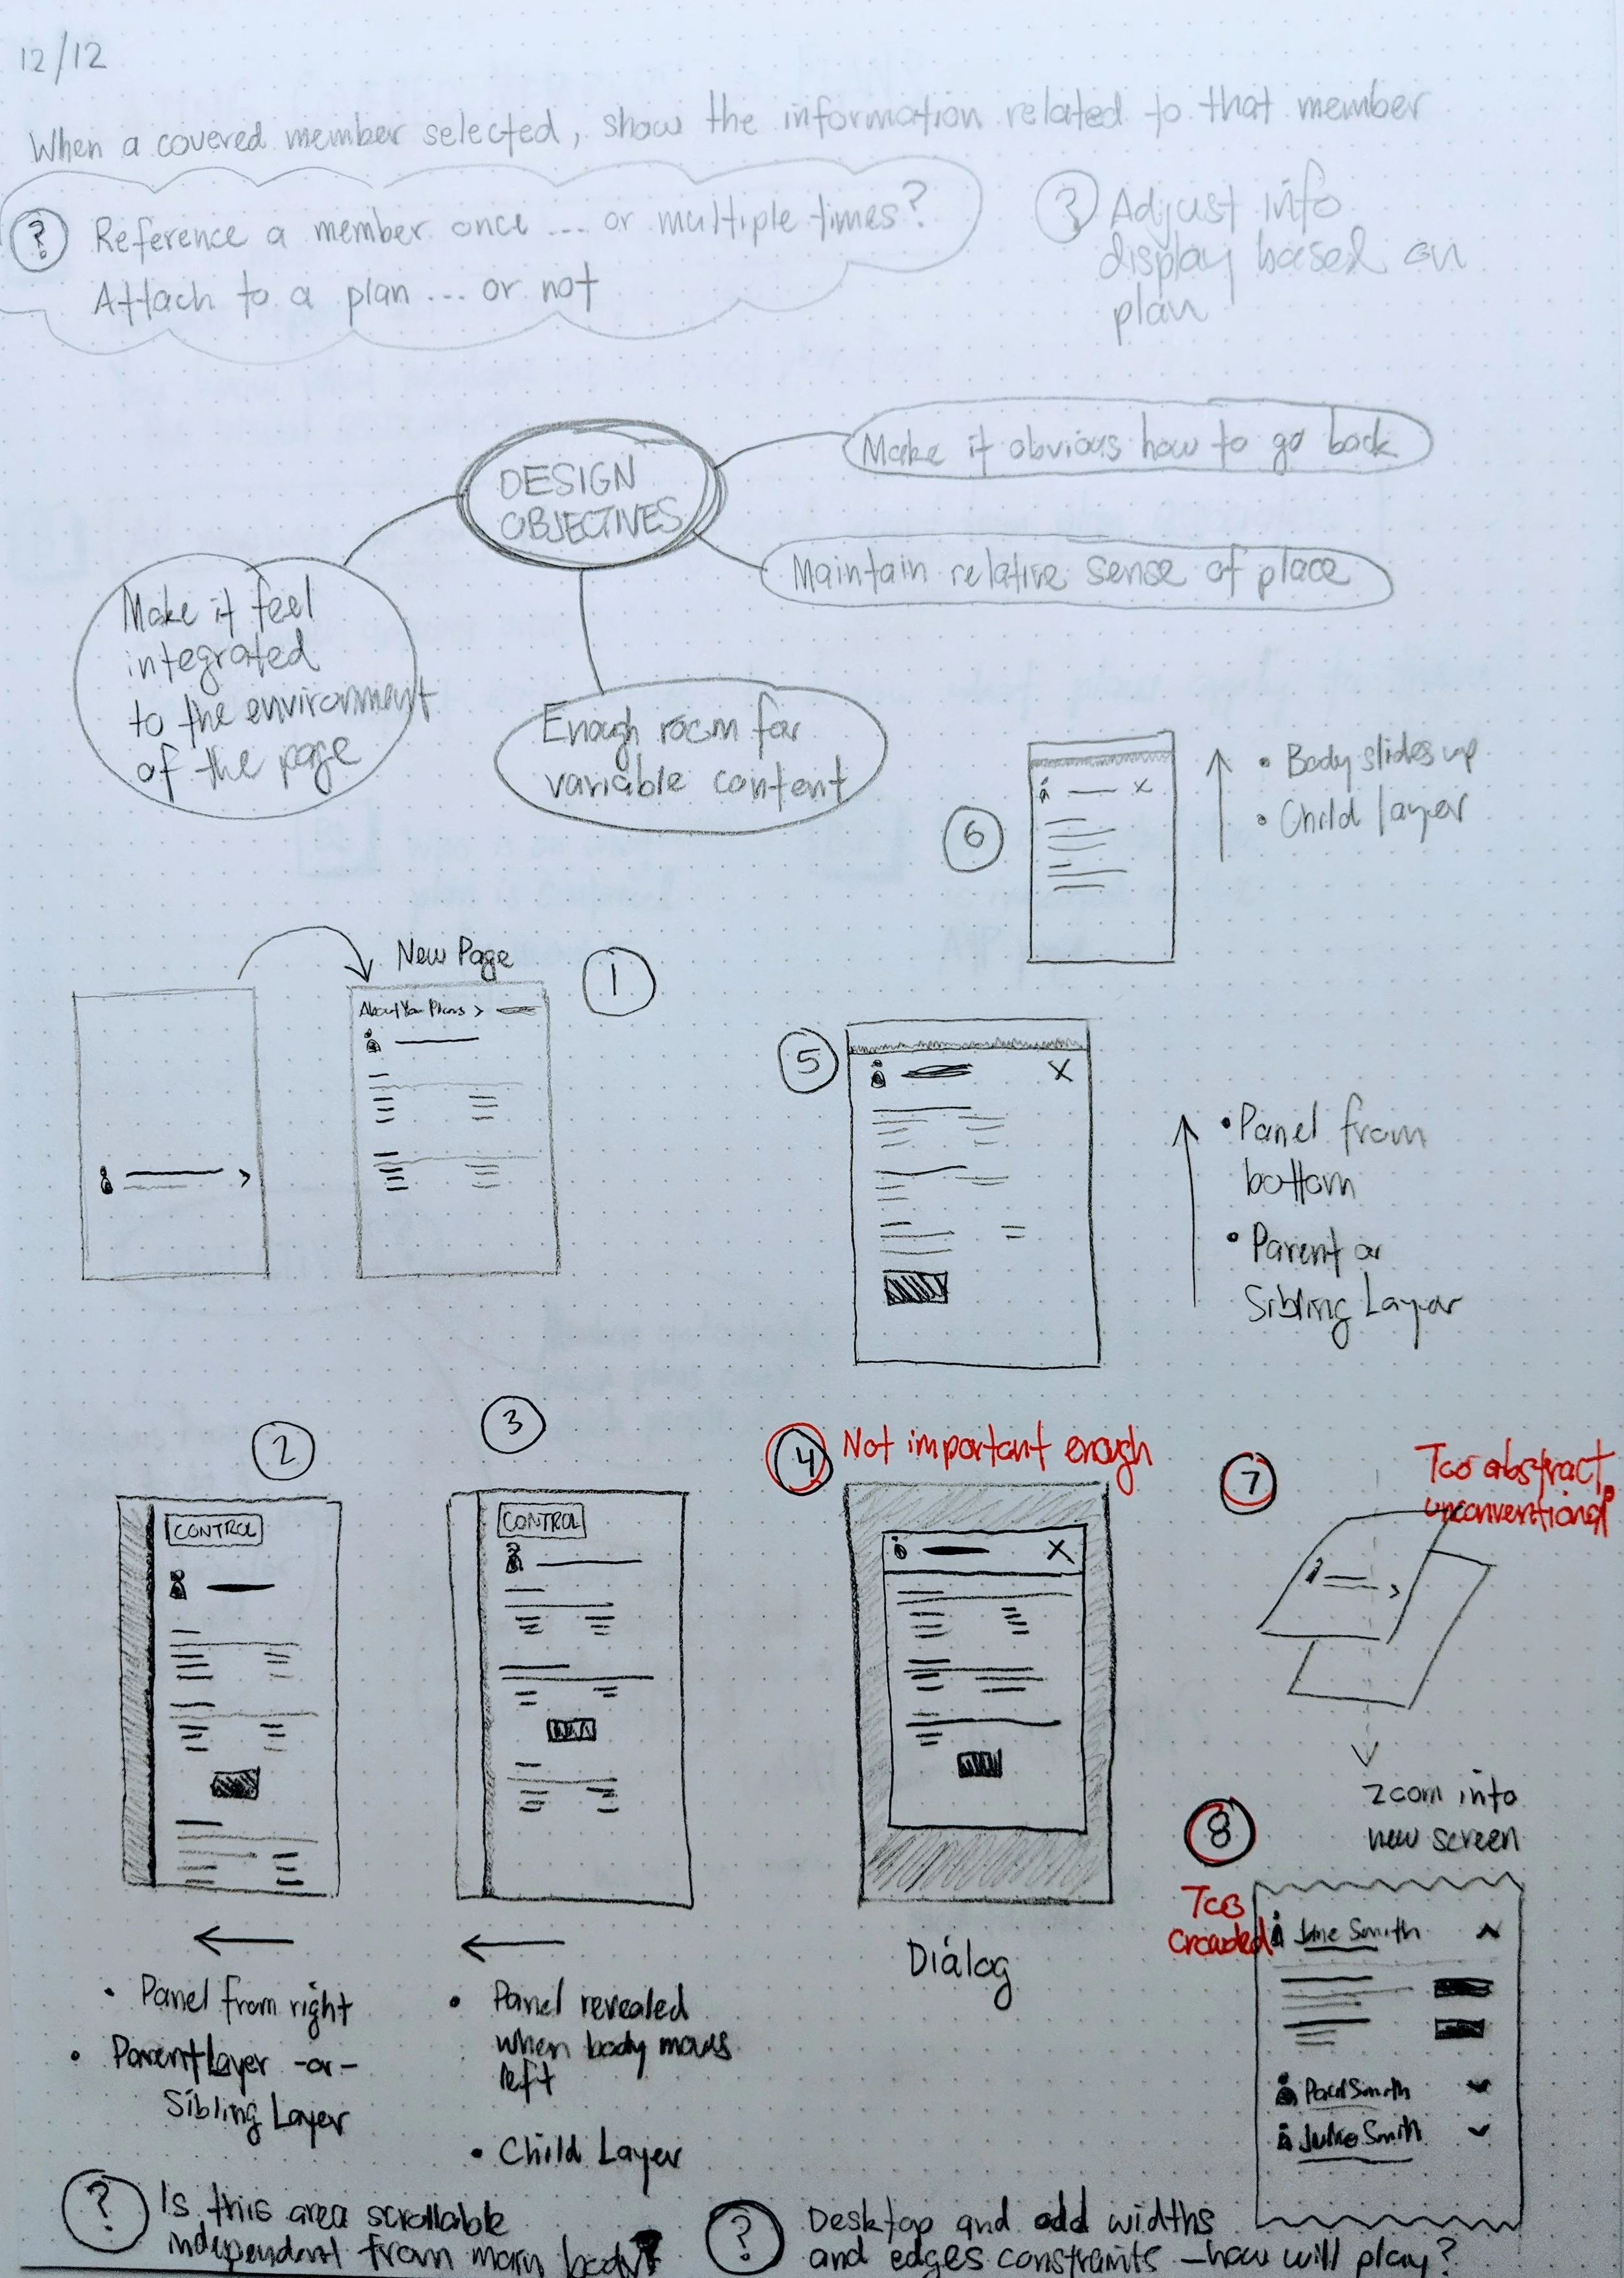 12/12
When a covered member selected, show the information related to that member
? Reference a member once ... or multiple times?
Attach to a plan ... or not
? Adjust info
display based on
plan
DESIGN
OBJECTIVES
Make it obvious how to go back
Maintain relative sense of place
Make it feel
integrated
to the environment
of the page
Enough room for
variable content
6
X
• Body slides up
• Child layer
New Page
1
About Your Plans >
>
5
X
• Panel from
bottom
• Parent or
Sibling Layer
2
CONTROL
• Panel from right
• Parent Layer -or-
Sibling Layer
3
CONTROL
• Panel revealed
when body moves
left
• Child Layer
4 Not important enough
X
Dialog
7
Too abstract,
unconventional
>
Zoom into
new screen
8
Too
Crowded
Jane Smith
Paul Smith
Julie Smith
? Is this area scrollable
independent from main body?
? Desktop and odd widths
and edges constraints — how will play?